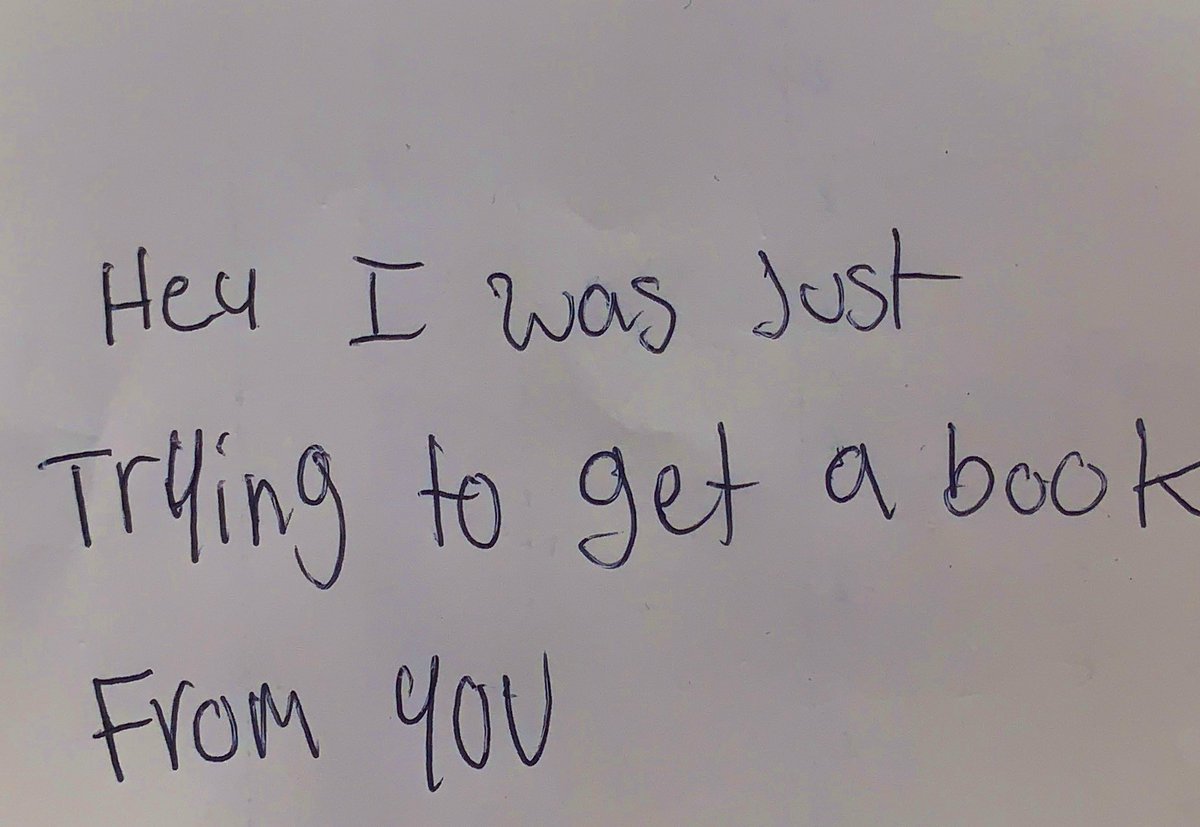 Hey I was Just
Trying to get a book
From you